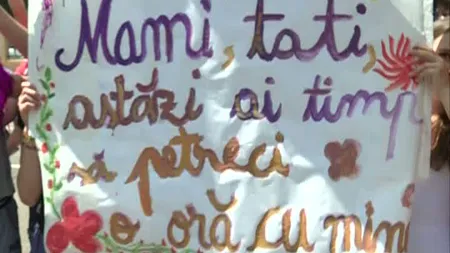 Mami, tati,
astăzi ai timp
să petreci
o oră cu mine